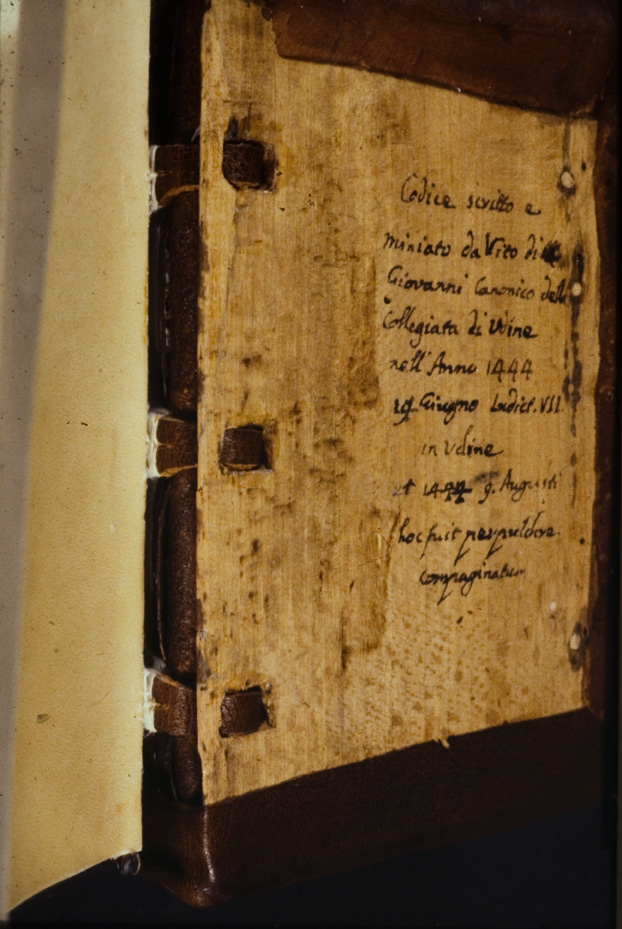 Codice scritto e
miniato da Vito di
Giovanni Canonico dell
Collegiata di Udine
nell'Anno 1444
19 Giugno Indict. VII
in Udine
et 1444 9. Augusti
hoc fuit perpulchre
compaginatum